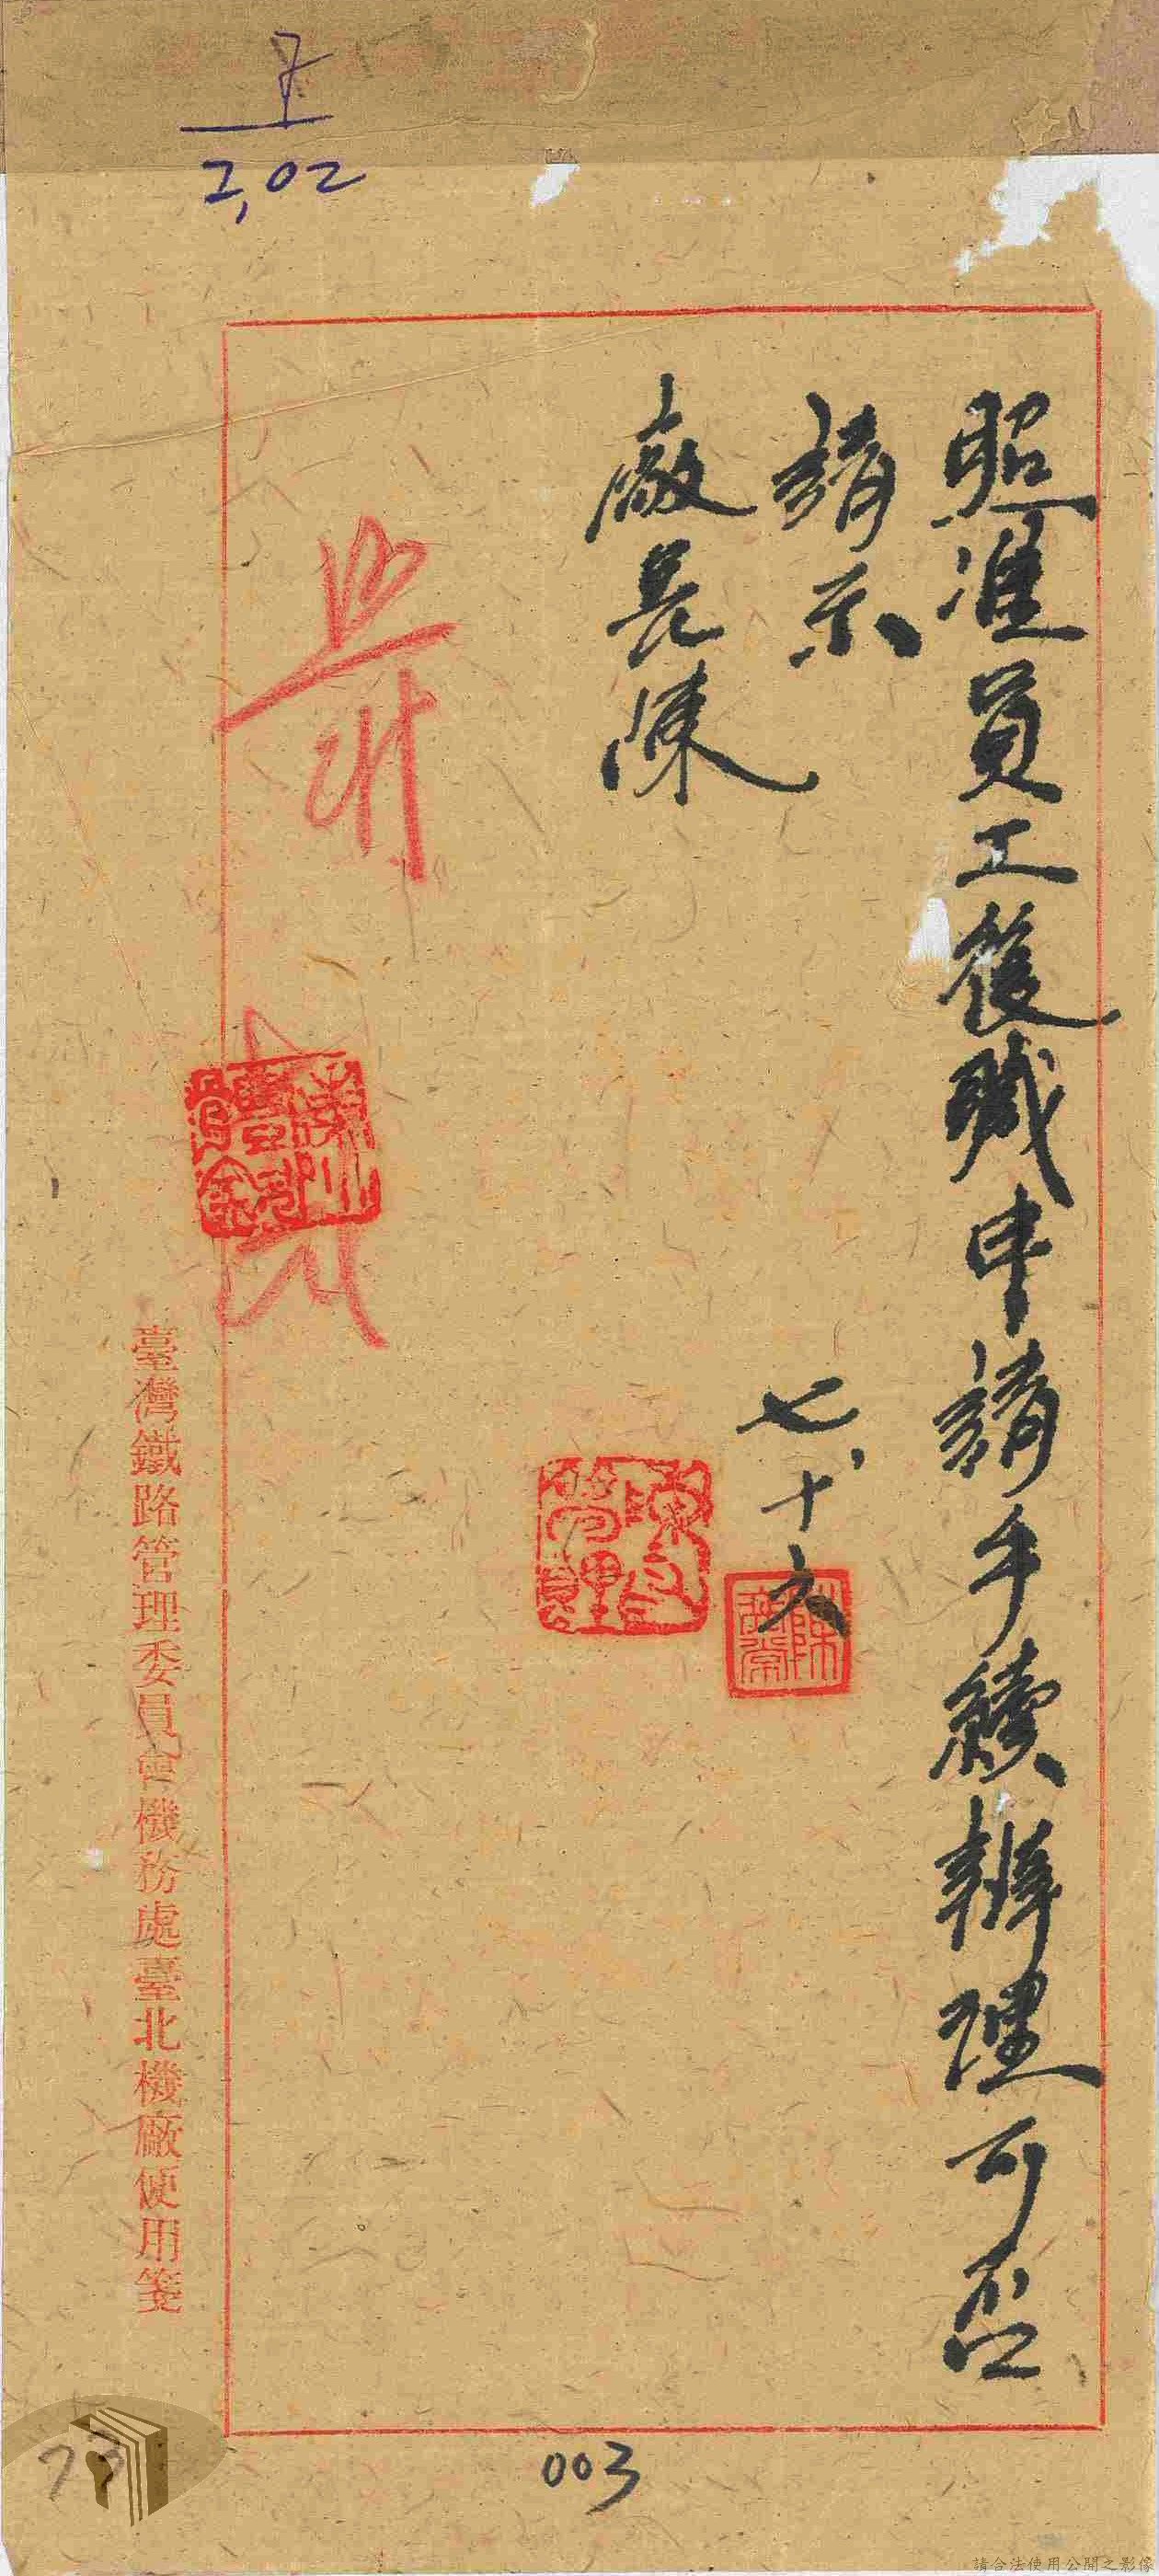 照准員工復職申請手續辦理可否
請示
廠長陳
七、十六
臺灣鐵路管理委員會機務處臺北機廠便用箋
2,02
003
73
請合法使用公開之影像